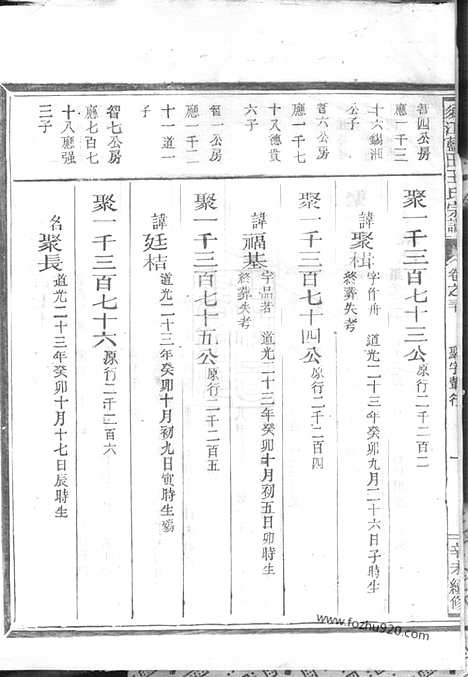 須江藍田王氏宗譜
卷之
聚字輩行
一
辛未續修
智四公房
應一千三
十六錫湘
公子
聚一千三百七十三公原行二千二百二
諱聚楫字作舟 道光二十三年癸卯九月二十六日子時生
終葬失考
智六公房
應一千七
十八德貴
六子
聚一千三百七十四公原行二千二百四
諱福基字品若 道光二十三年癸卯十月初五日卯時生
終葬失考
智一公房
應二千二
十一道一
子
聚一千三百七十五公原行二千二百五
諱廷桔道光二十三年癸卯十月初九日寅時生殤
智七公房
應七百七
十八廳强
三子
聚一千三百七十六原行二千二百六
名聚長道光二十三年癸卯十月十七日辰時生
www.fozhu920.com